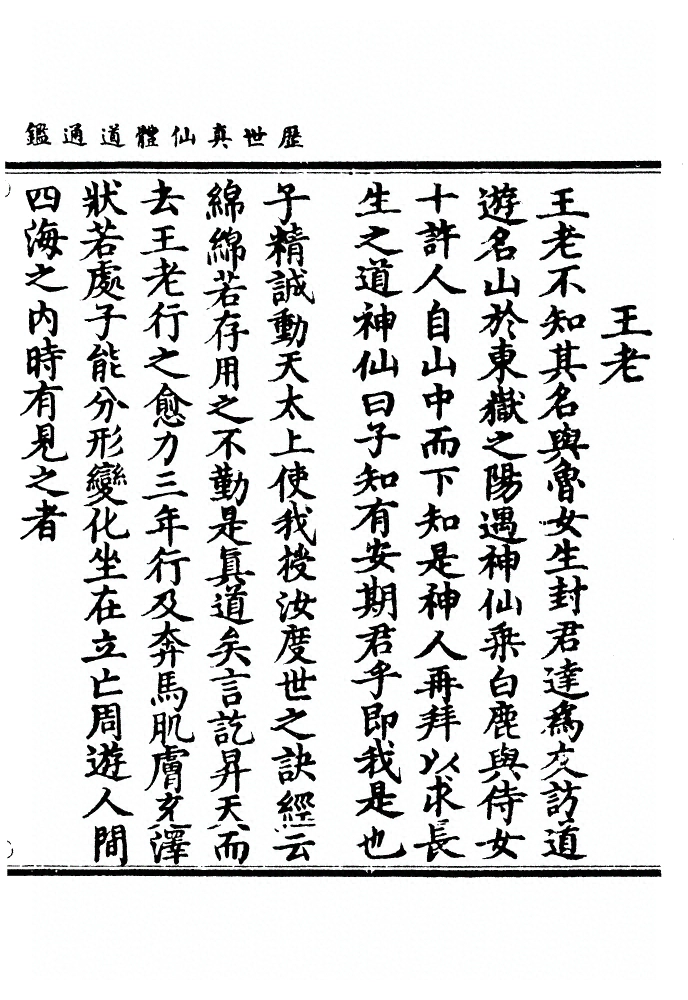 歷世真仙體道通鑑
王老
王老不知其名與魯女生封君達爲友訪道
遊名山於東嶽之陽遇神仙乘白鹿與侍女
十許人自山中而下知是神人再拜以求長
生之道神仙曰子知有安期君乎即我是也
子精誠動天太上使我授汝度世之訣經云
綿綿若存用之不勤是真道矣言訖昇天而
去王老行之愈力三年行及奔馬肌膚充澤
狀若處子能分形變化坐在立亡周遊人間
四海之內時有見之者